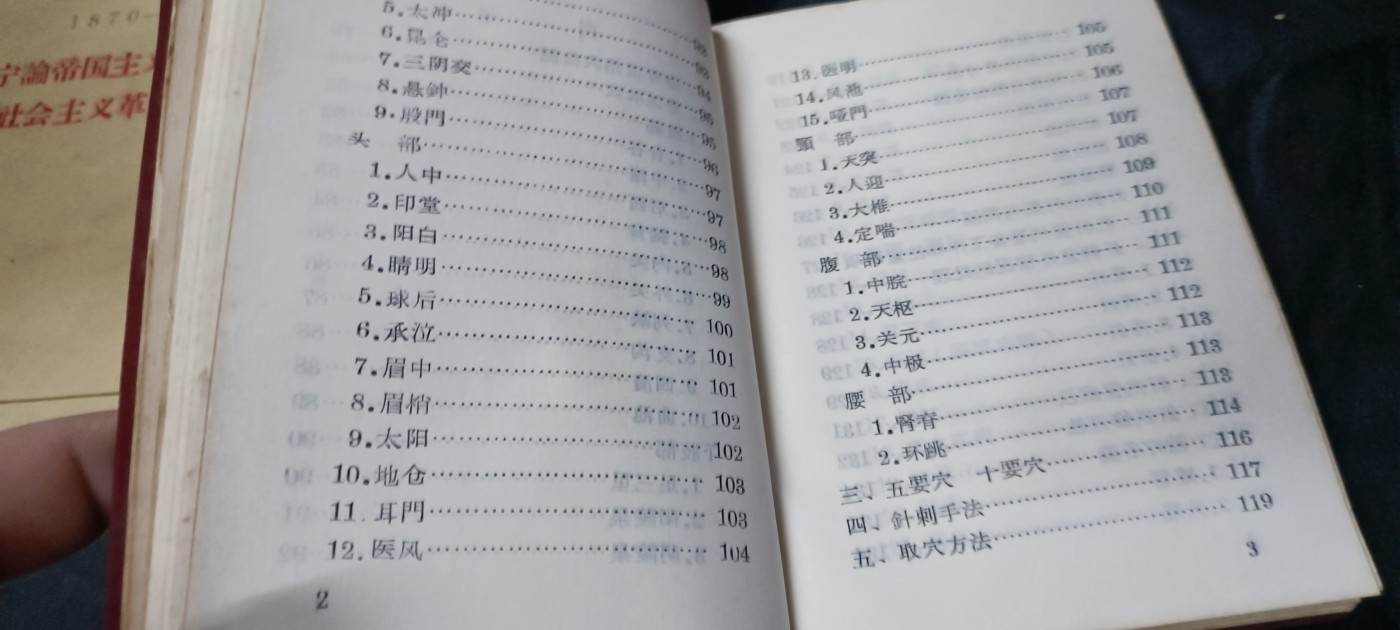 1870—
宁論帝国主义
社会主义革
5.太冲……93
6.昆仑……94
7.三阴交……95
8.悬鈡……95
9.殷門……96
头　部……97
1.人中……97
2.印堂……98
3.阳白……98
4.睛明……99
5.球后……100
6.承泣……101
7.眉中……101
8.眉梢……102
9.太阳……102
10.地仓……103
11.耳門……103
12.医风……104
2
13.医明……105
14.风池……105
15.哑門……106
頸　部……107
1.天突……107
2.人迎……108
3.大椎……109
4.定喘……110
腹　部……111
1.中脘……111
2.天枢……112
3.关元……112
4.中极……113
腰　部……113
1.腎脊……113
2.环跳……114
三、五要穴　十要穴……116
四、針刺手法……117
五、取穴方法……119
3